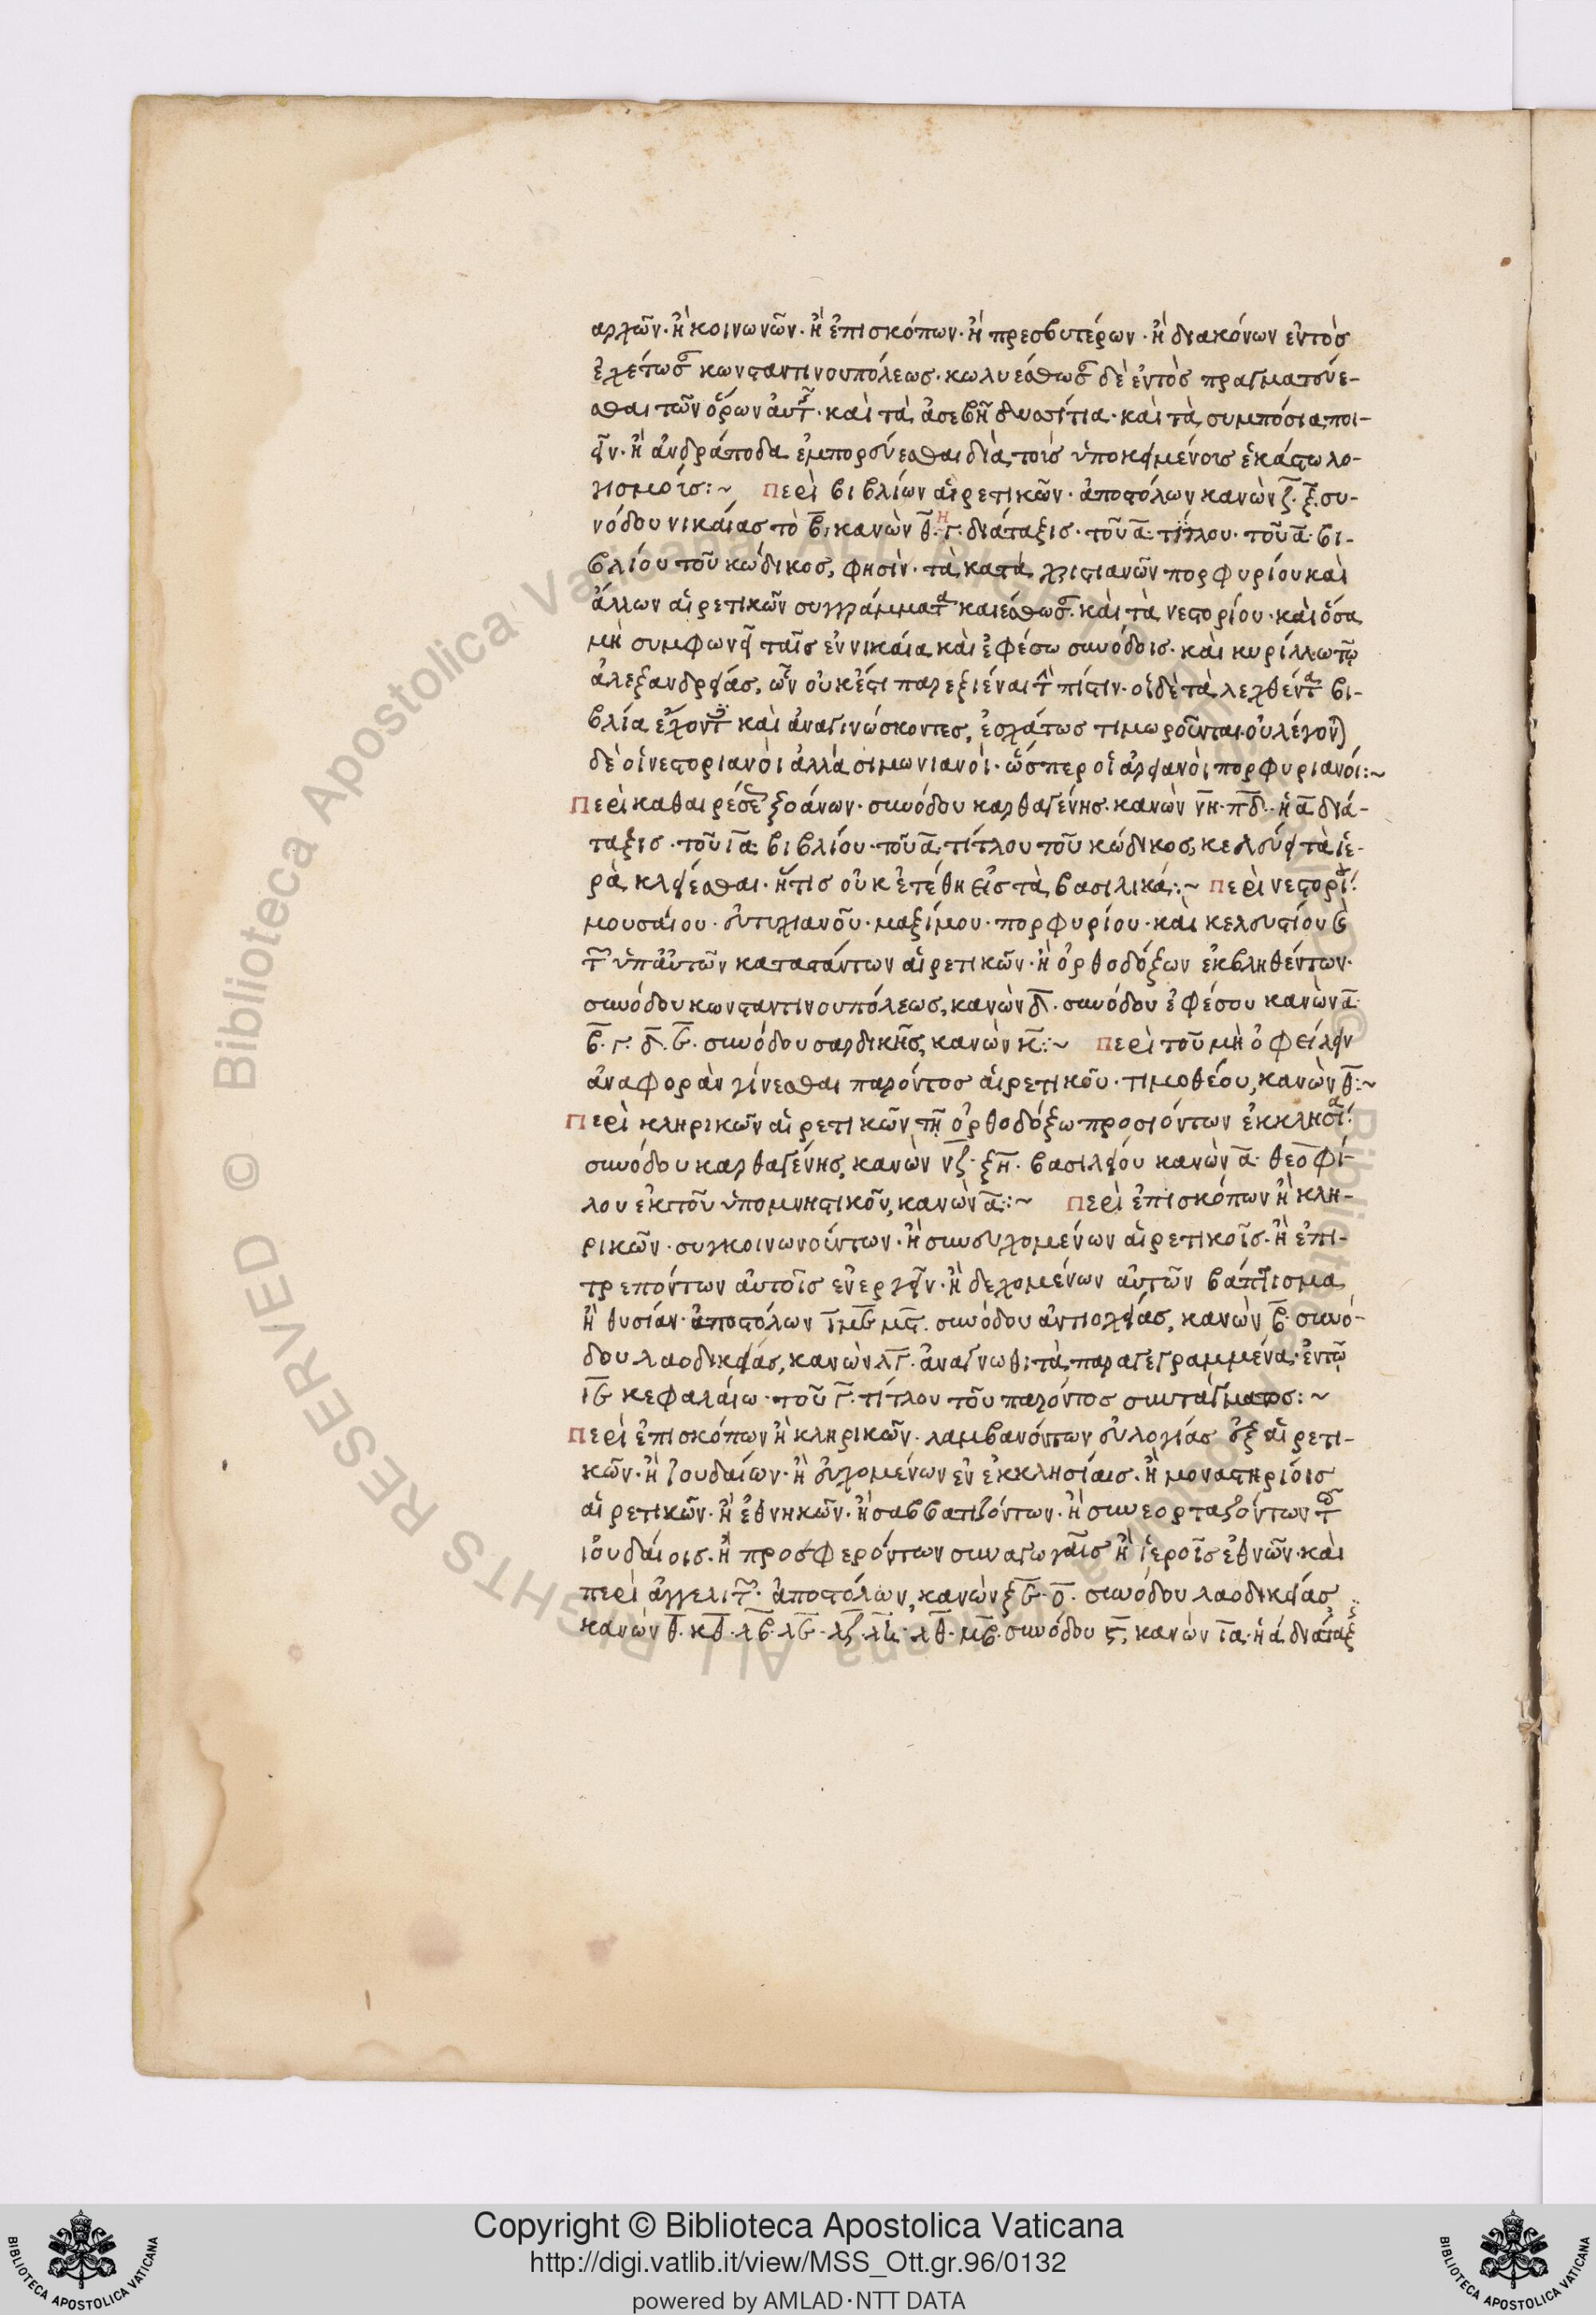 αρχῶν· ἢ κοινωνῶν· ἢ ἐπισκόπων· ἢ πρεσβυτέρων· ἢ διακόνων ἐντὸς
κωνσταντινουπόλεως· δὲ ἐντὸς πραγματεύε-
σθαι τῶν ὅρων αὐτ· καὶ τὰ ἀσεβῆ καὶ τὰ συμπόσια ποι-
εῖν· ἢ ἀνδράποδα ἐμπορεύεσθαι διὰ τοῖς ὑποκειμένοις ἑκάστω λο-
γισμοῖς:~ Περὶ βιβλίων αἱρετικῶν· ἀποστόλων κανὼν ζ· ξ· συ-
νόδου νικαίας τὸ β, κανὼν θ· ἡ γ· διάταξις· τοῦ α· τίτλου· τοῦ α· βι-
βλίου τοῦ κώδικος, φησὶν· τὰ κατὰ χριστιανῶν πορφυρίου καὶ
ἄλλων αἱρετικῶν συγγράμματα καιέσθωσ· καὶ τὰ νεστορίου· καὶ ὅσα
μὴ συμφωνεῖ ταῖς ἐν νικαία καὶ ἐφέσω συνόδοις· καὶ κυρίλλω τῶ
ἀλεξανδρείας, ὧν οὐκ ἔστι παρεξιέναι τὴν πίστιν· οἱ δὲ τὰ λεχθέντα βι-
βλία ἔχοντες καὶ ἀναγινώσκοντες, ἐσχάτως τιμωροῦνται· οὐ λέγον
δὲ οἱ νεστοριανοὶ ἀλλὰ σιμωνιανοί· ὥσπερ οἱ ἀρειανοὶ πορφυριανοί:~
Περὶ καθαιρέσε ξοάνων· συνόδου καρθαγένης· κανὼν νη· πδ· ἡ α διά-
ταξις· τοῦ ια βιβλίου· τοῦ α τίτλου τοῦ κώδικος, κελεύει τὰ ἱε-
ρὰ κλείεσθαι· ἥτις οὐκ ἐτέθη εἰς τὰ βασιλικά:~ Περὶ νεστορί
μουσαίου· εὐτυχιανοῦ· μαξίμου· πορφυρίου· καὶ κελεστίου καὶ
τ ὑπ᾽ αὐτῶν καταστάντων αἱρετικῶν· ἢ ὀρθοδόξων ἐκβληθέντων·
συνόδου κωνσταντινουπόλεως, κανὼν δ· συνόδου ἐφέσου κανὼν α·
β· γ· δ· ϛ· συνόδου σαρδικῆς, κανὼν κ:~ Περὶ τοῦ μὴ ὀφείλειν
ἀναφορὰν γίνεσθαι παρόντος αἱρετικοῦ· τιμοθέου, κανὼν θ:~
Περὶ κληρικῶν αἱρετικῶν τῆ ὀρθοδόξω προσιόντων ἐκκλησία·
συνόδου καρθαγένης, κανὼν νζ· ξη· βασιλείου κανὼν α· θεοφί-
λου ἐκ τοῦ ὑπομνηστικοῦ, κανὼν α:~ Περὶ ἐπισκόπων ἢ κλη-
ρικῶν· συγκοινωνούντων· ἢ συνευχομένων αἱρετικοῖς· ἢ ἐπι-
τρεπόντων αὐτοῖς ἐνεργεῖν· ἢ δεχομένων αὐτῶν βάπτισμα
ἢ θυσίαν· ἀποστόλων συνόδου ἀντιοχείας, κανὼν β· συνό-
δου λαοδικείας, κανὼν λγ· ἀνάγνωθι τὰ παραγεγραμμένα· ἐν τῶ
ιϛ κεφαλαίω· τοῦ γ· τίτλου τοῦ παρόντος συντάγματος:~
Περὶ ἐπισκόπων ἢ κληρικῶν· λαμβανόντων εὐλογίας ἐξ αἱρετι-
κῶν· ἢ ἰουδαίων· ἢ εὐχομένων ἐν ἐκκλησίαις· ἢ μοναστηρίοις
αἱρετικῶν· ἢ ἐθνικῶν· ἢ σαββατιζόντων· ἢ συνεορταζόντων τ
ἰουδαίοις· ἢ προσφερόντων συναγωγαῖς ἢ ἱεροῖς ἐθνῶν· καὶ
περὶ ἀγγελιτ· ἀποστόλων, κανὼν ξϛ· ο· συνόδου λαοδικείας
κανὼν θ· κθ· λβ· λϛ· λζ· λη· λθ· μβ· συνόδου ϛ, κανὼν ια· ἡ α διάταξ
Copyright © Biblioteca Apostolica Vaticana
http://digi.vatlib.it/view/MSS_Ott.gr.96/0132
powered by AMLAD·NTT DATA
BIBLIOTECA APOSTOLICA VATICANA
BIBLIOTECA APOSTOLICA VATICANA